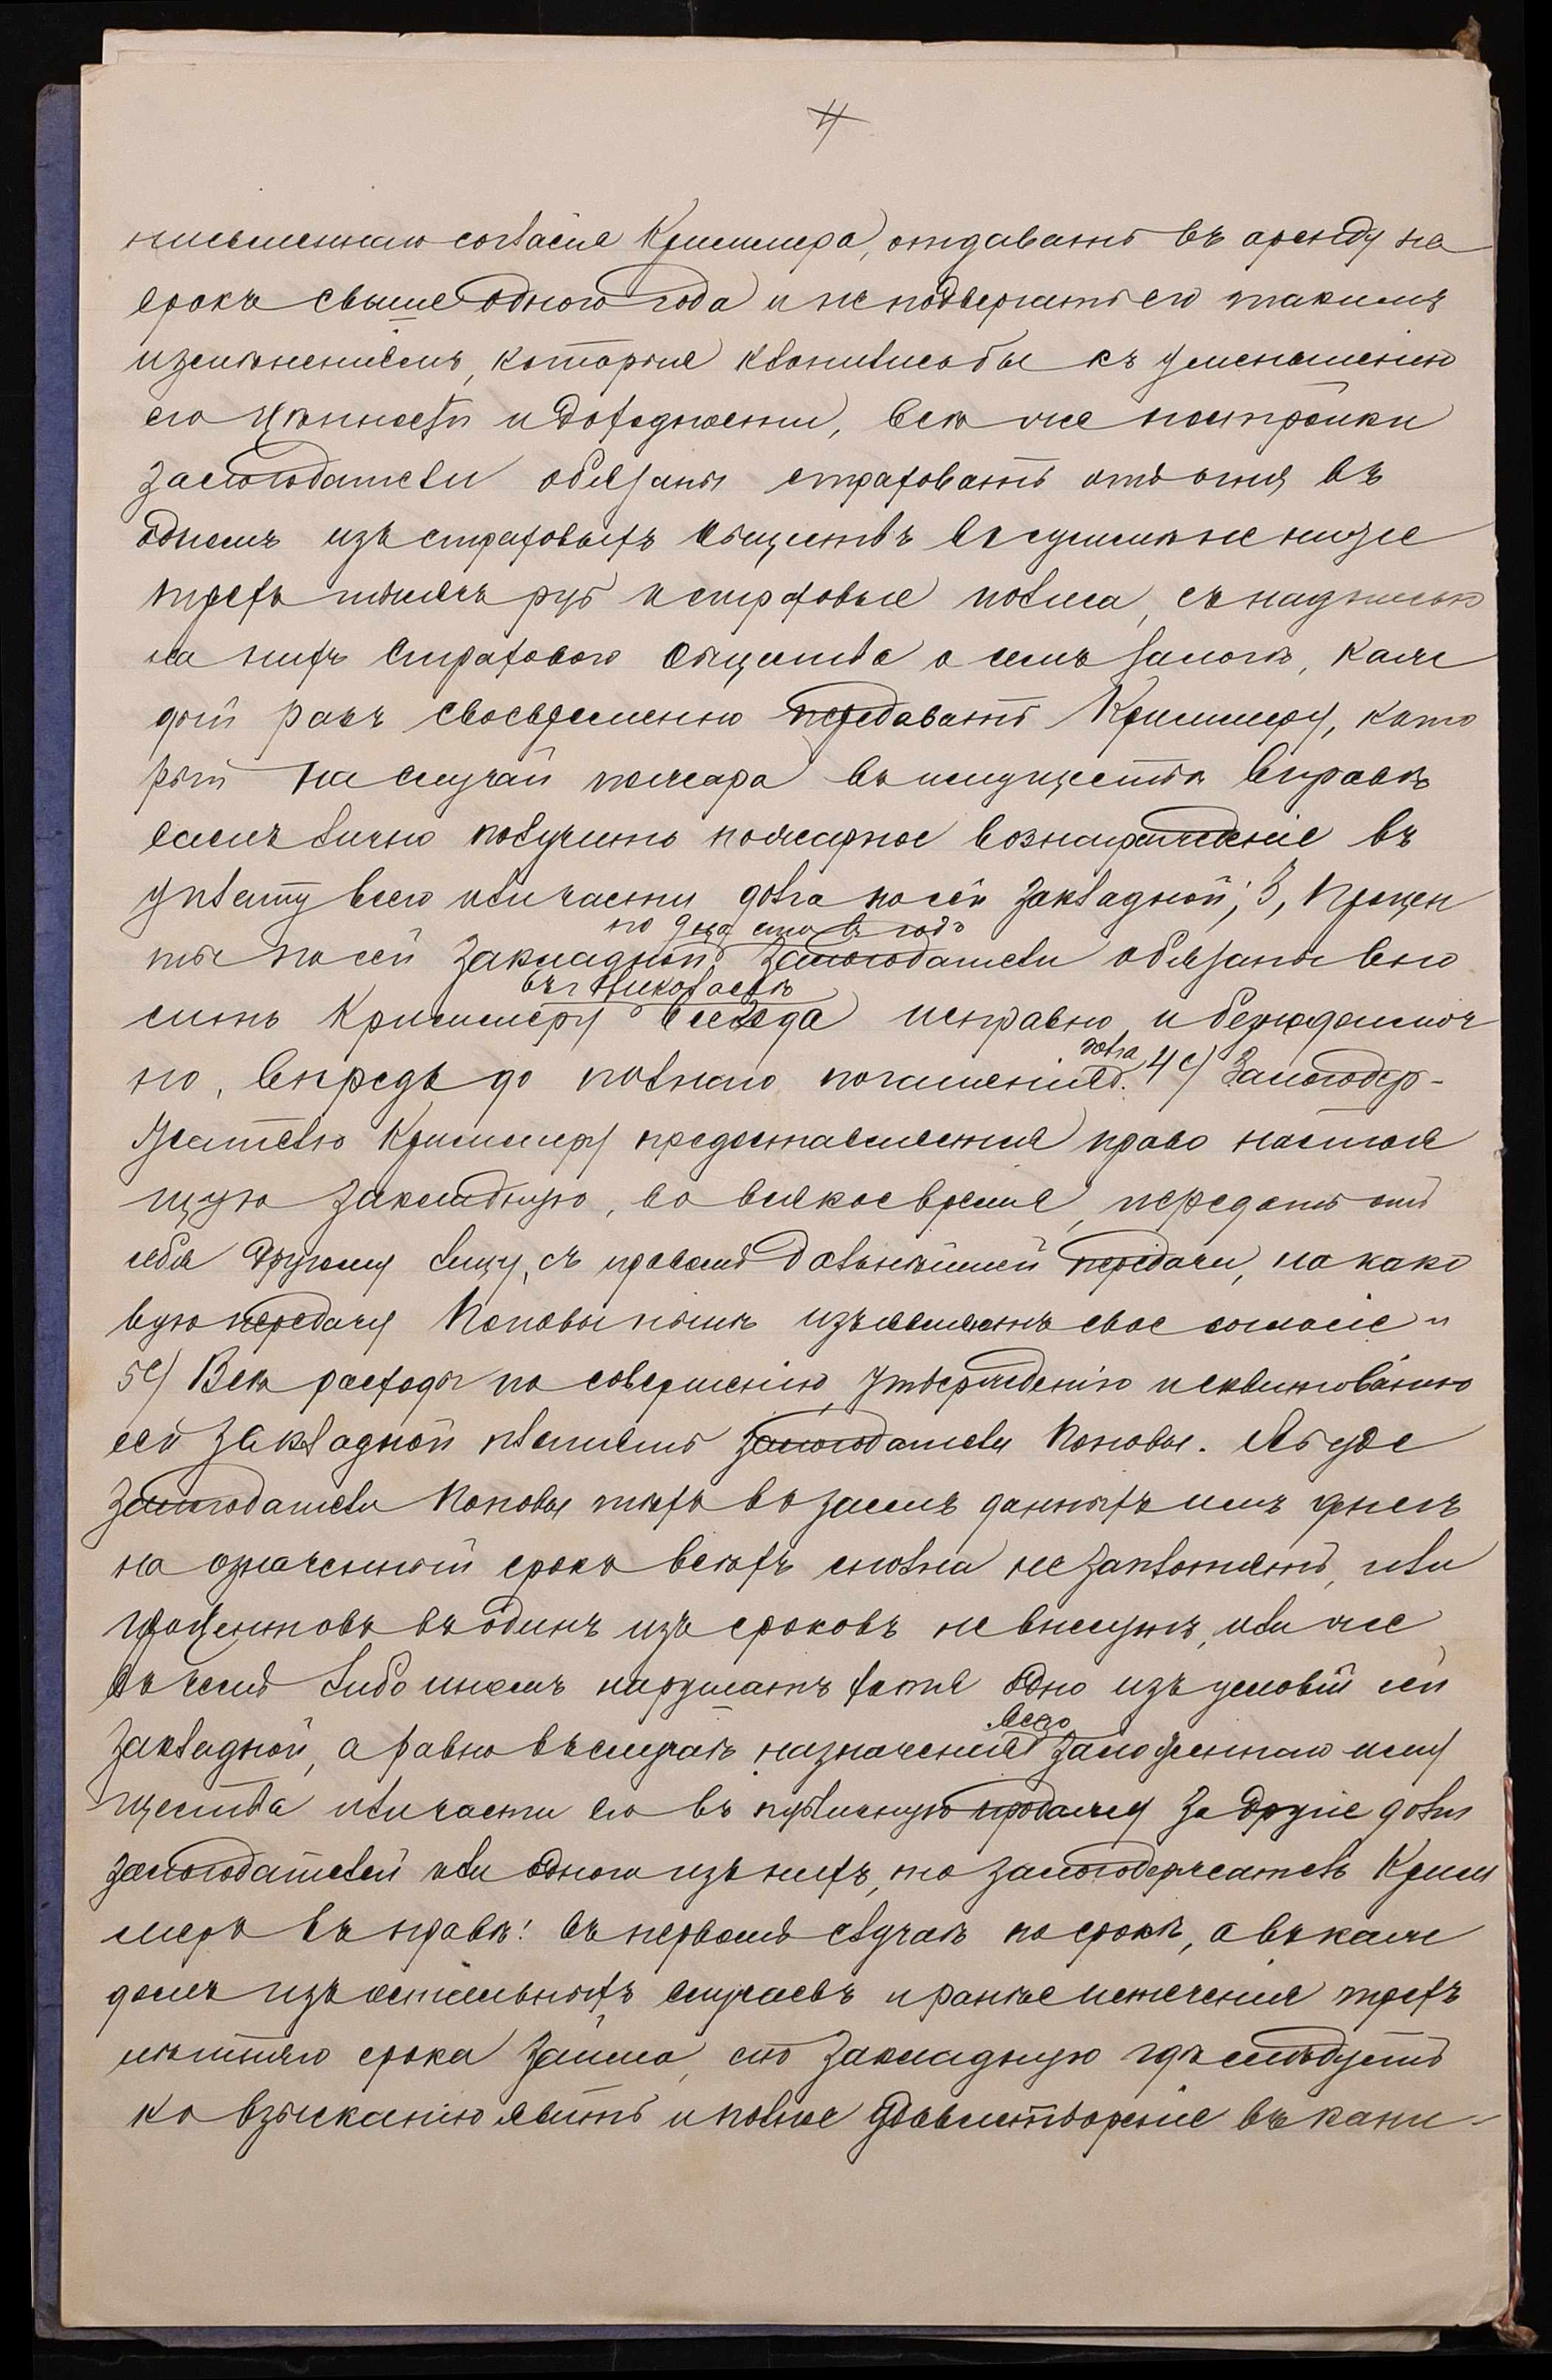 4
письменнаго согласія Криммера, отдавать въ аренду на
срокъ свыше одного года и не подвергать его такимъ
измѣненіямъ, которыя клонились бы къ уменьшенію
его цѣнности и доходности, всѣ же постройки
залогодатели обязаны страховать отъ огня въ
одномъ изъ страховыхъ обществъ въ суммѣ не ниже
трехъ тысячъ руб и страховые полиса, съ надписью
на нихъ Страхового Общества о семъ залогѣ, каж
дый разъ своевременно передавать Криммеру, кото
рый на случай пожара въ имуществѣ вправѣ
самъ лично получить пожарное вознагражденіе въ
уплату всего или части долга по сей закладной; 3, Процен
по 9 на сто въ годъ
ты по сей закладной залогодатели обязаны вно
въ г Николаевѣ
сить Криммеру всегда исправно и безнедоимоч
долга
но, впредь до полнаго погашенія. 4е) Залогодер-
жателю Криммеру предоставляется право настоя
щую закладную, во всякое время, передать отъ
себя другому лицу, съ правомъ дальнѣйшей передачи, на како
вую передачу Поповы нынѣ изъявляютъ свое согласіе и
5е) Всѣ расходы по совершенію, утвержденію и сквитованію
сей закладной платятъ залогодатели Поповы. А буде
залогодатели Поповы тѣхъ въ заемъ данныхъ имъ денегъ
на означенный срокъ всѣхъ сполна не заплотятъ, или
процентовъ въ одинъ изъ сроковъ не внесутъ, или же
въ чемъ либо иномъ нарушатъ хотя одно изъ условій сей
всего
закладной, а равно въ случаѣ назначенія заложеннаго иму
щества или части его въ публичную продажу за другіе долги
залогодателей или одного изъ нихъ, то залогодержатель Крим
меръ въ правѣ: въ первомъ случаѣ по срокѣ, а въ каж
домъ изъ остальныхъ случаевъ и ранѣе истеченія трехъ
лѣтняго срока займа, сію закладную гдѣ слѣдуетъ
ко взысканію явить и полное удовлетвореніе въ капи-